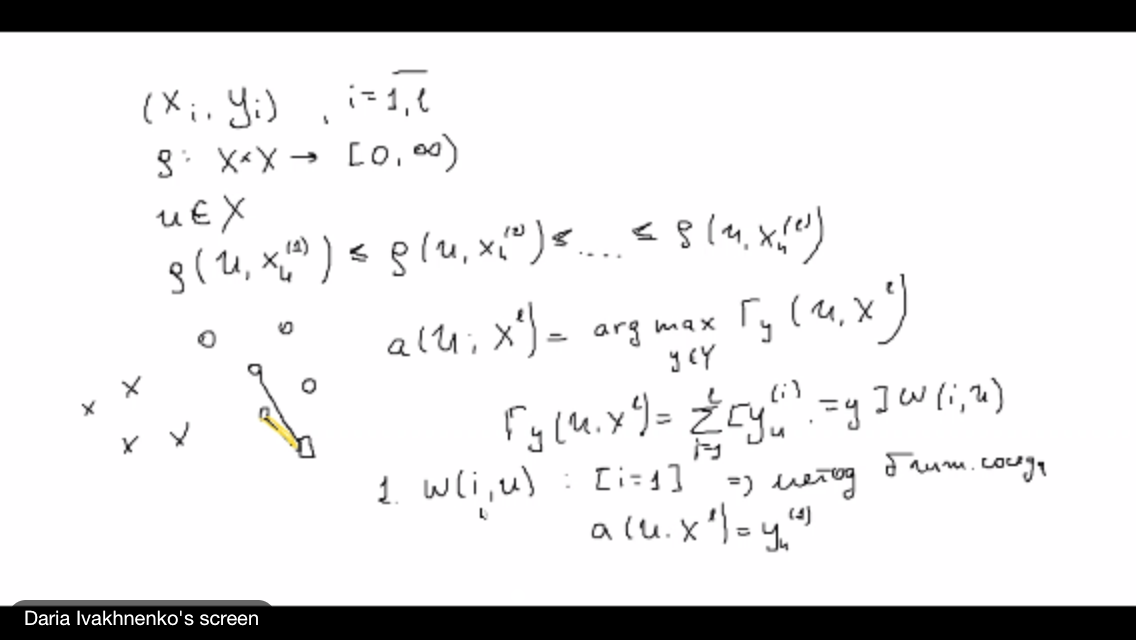 (x_i, y_i), i = \overline{1, l}
ρ: X×X → [0, ∞)
u ∈ X
ρ(u, x_u^{(1)}) ≤ ρ(u, x_u^{(2)}) ≤ .... ≤ ρ(u, x_u^{(l)})
a(u; X^l) = arg max_{y∈Y} Γ_y (u, X^l)
Γ_y (u, X^l) = Σ_{i=1}^{l} [y_u^{(i)} = y] w(i, u)
1. w(i, u) : [i=1] => метод ближ. соседа
a(u, X^l) = y_u^{(1)}
Daria Ivakhnenko's screen